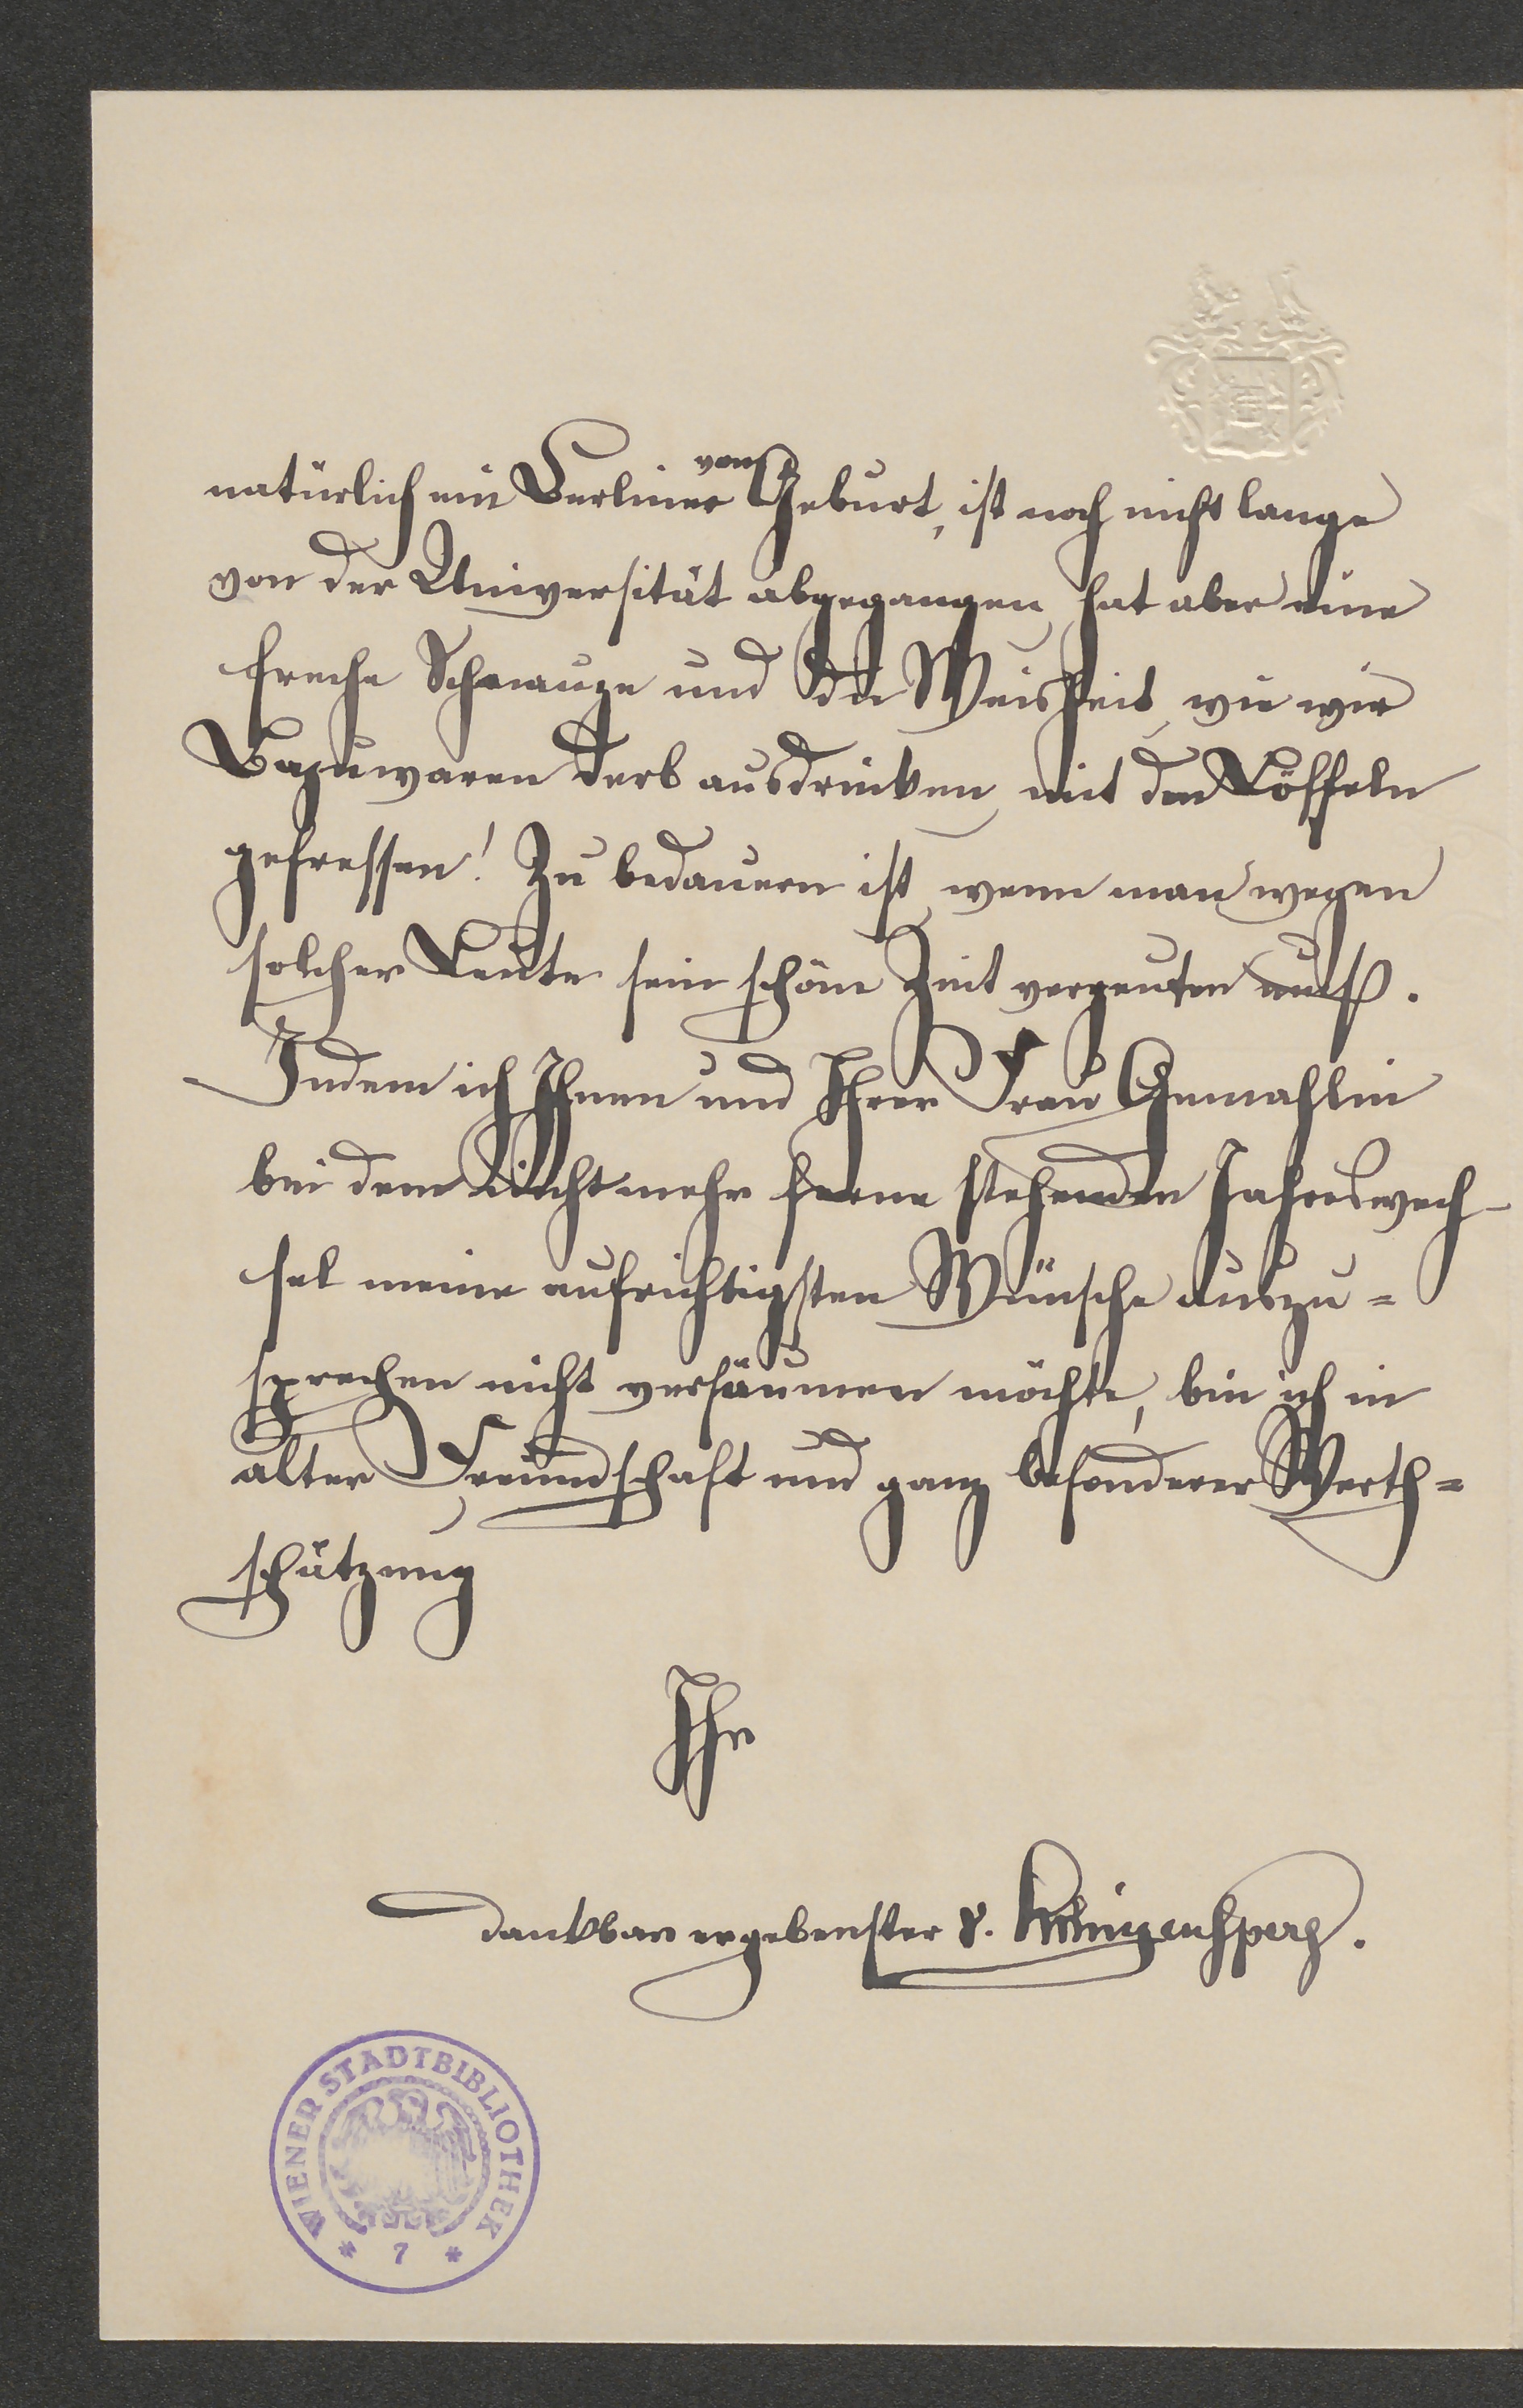 natürlich ein Berliner von Geburt, ist noch nicht lange
von der Universität abgegangen, hat aber eine
freche Schnauze und die Weisheit, wie wir
Bajuwaren derb ausdrücken, mit den Löffeln
gefressen! Zu bedauern ist, wenn man wegen
solcher Leute sein schöne Zeit vergeuten muß.
Indem ich Ihnen und Ihrer Frau Gemahlin
bei dem nicht mehr ferne stehenden Jahreswech-
sel meine aufrichtigsten Wünsche auszu=
sprechen nicht versäumen möchte, bin ich in
alter Freundschaft und ganz besonderer Werth=
schätzung
Ihr
dankbar ergebenster v.
WIENER STADTBIBLIOTHEK
* 7 *